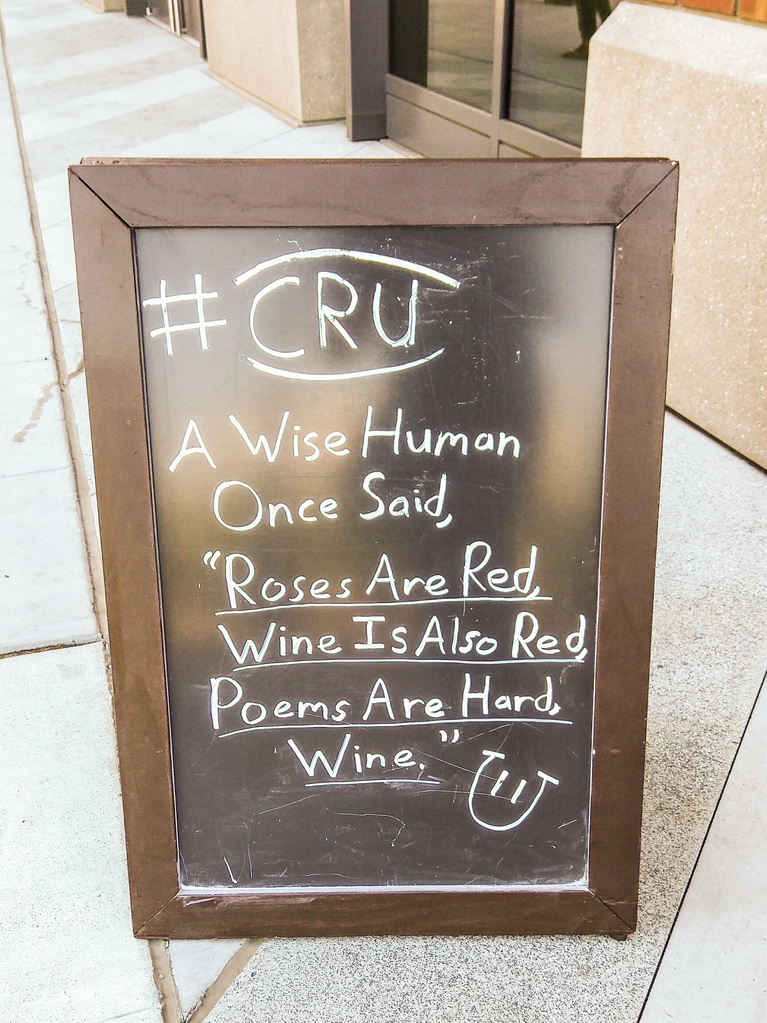 #CRU
A Wise Human
Once Said,
"Roses Are Red,
Wine Is Also Red,
Poems Are Hard,
Wine."